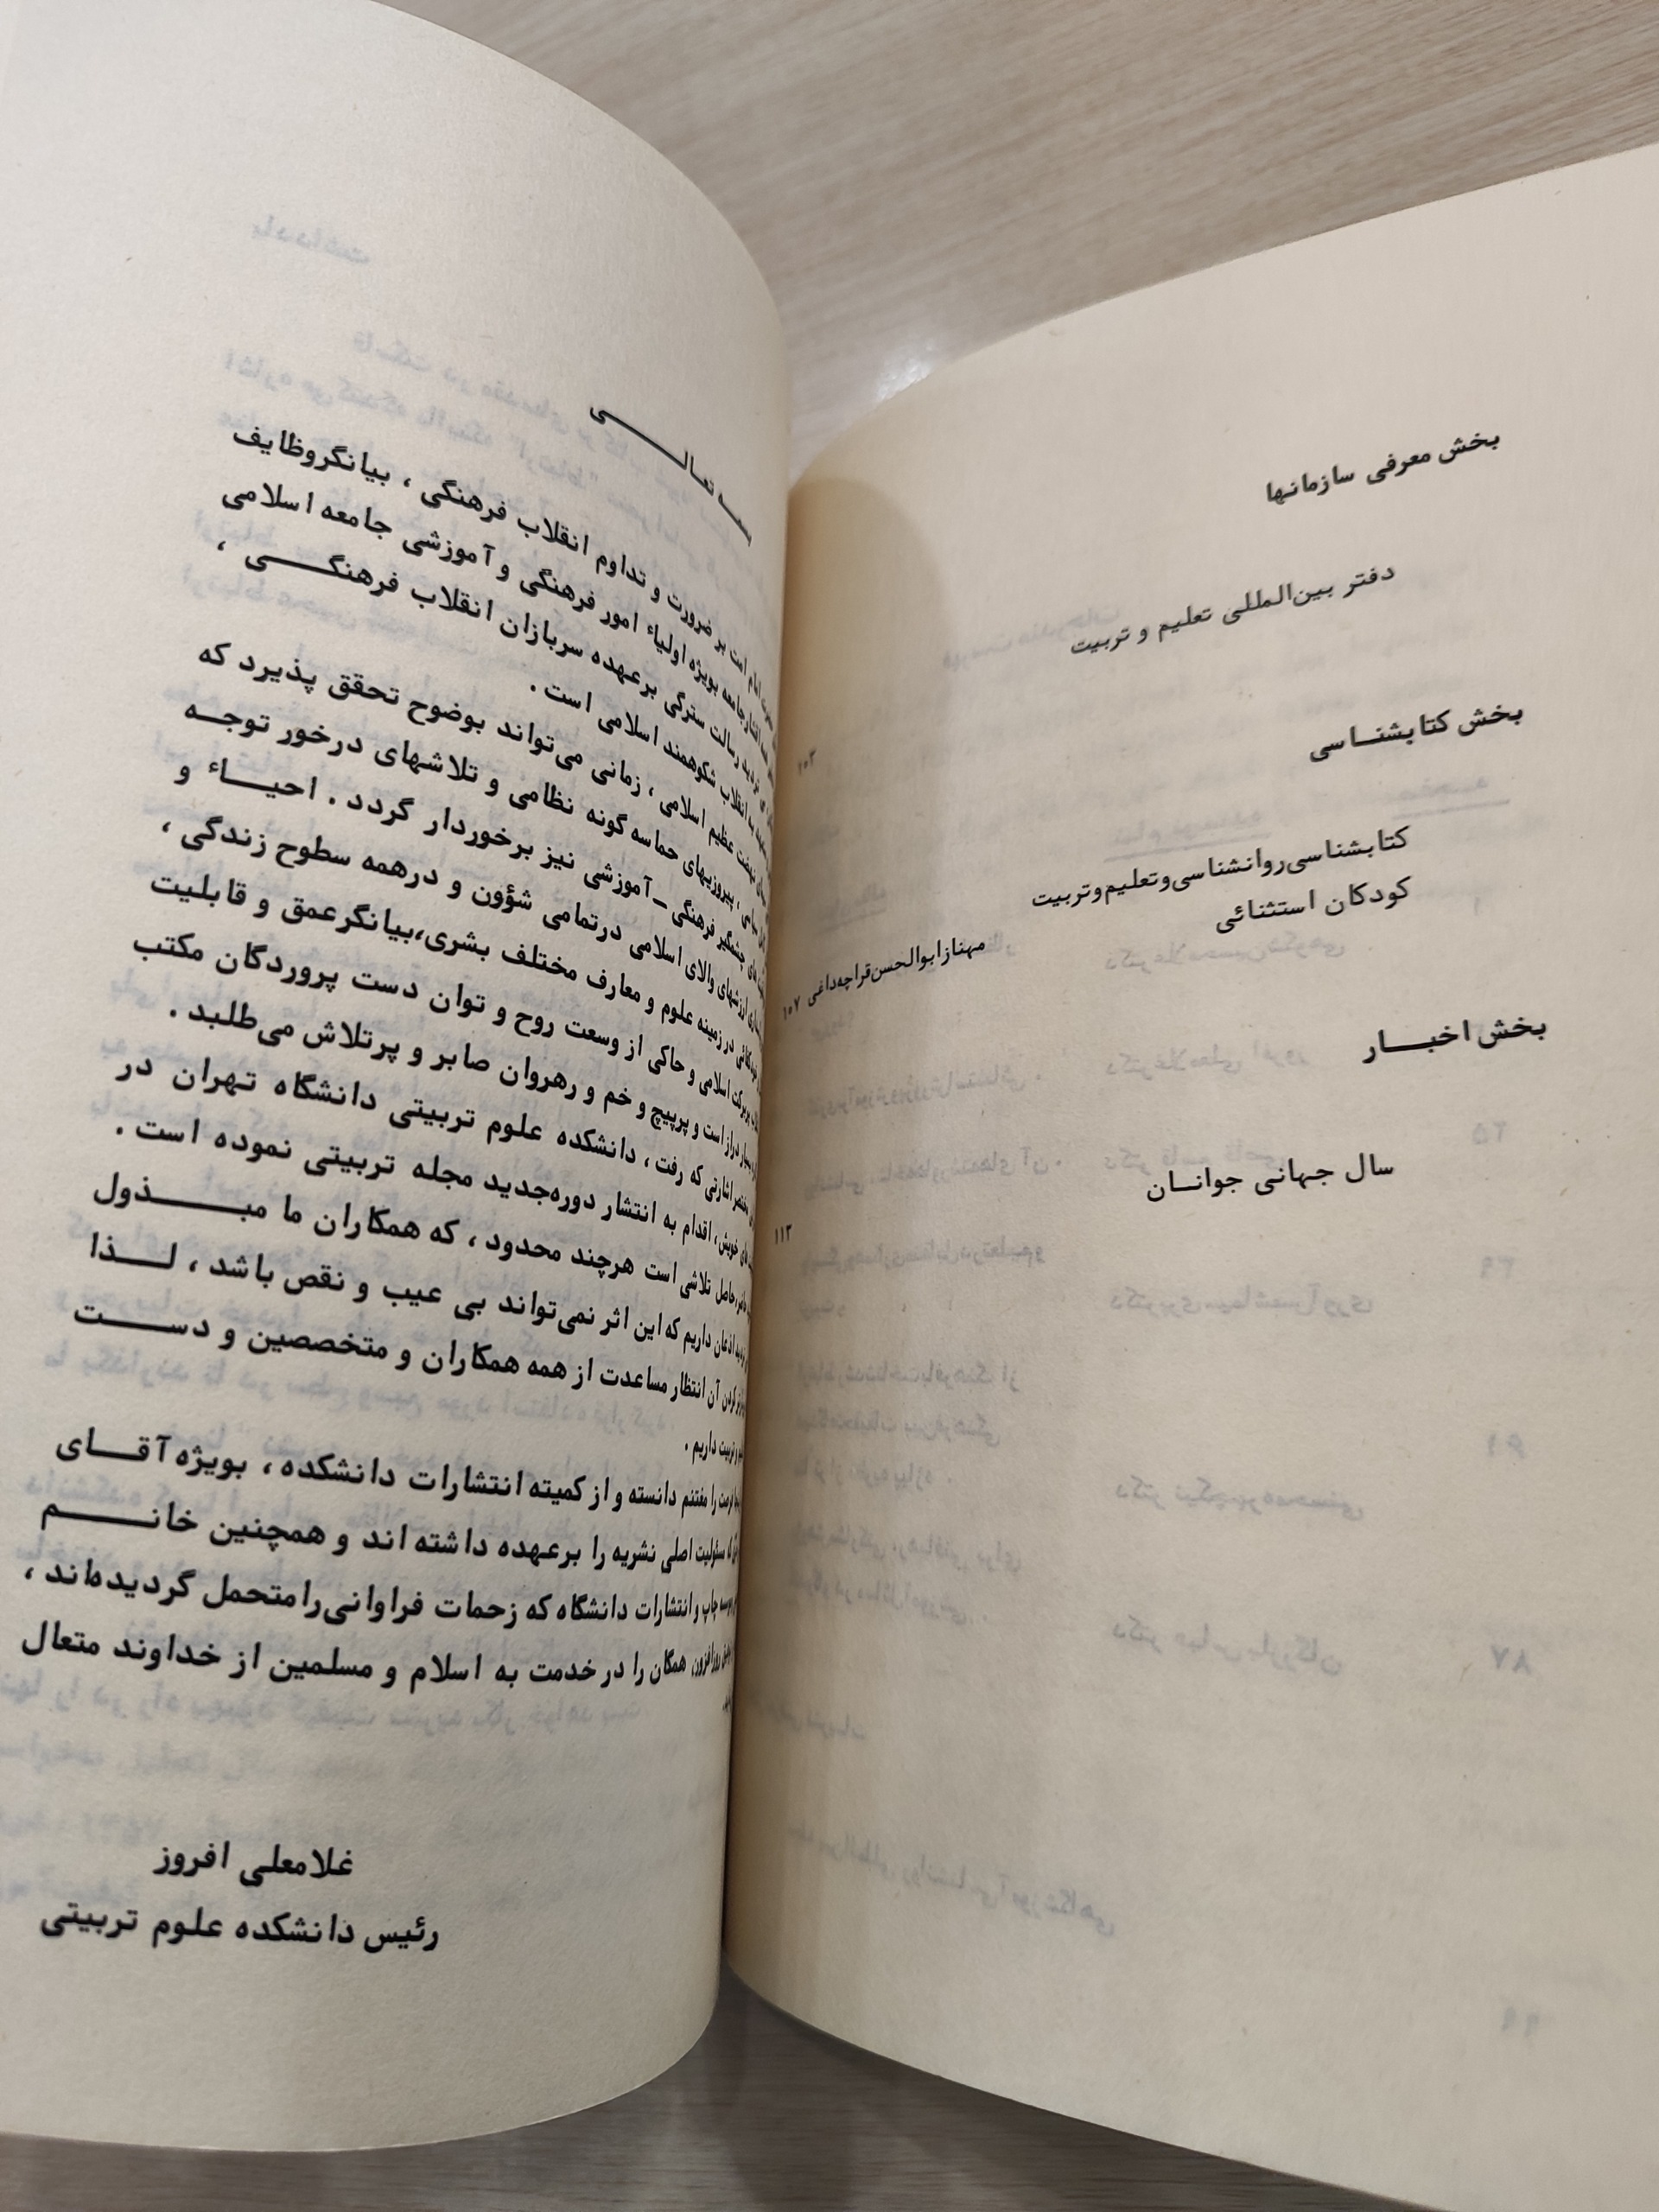 بخش معرفی سازمانها
دفتر بین‌المللی تعلیم و تربیت
۱۰۳
بخش کتابشناسی
کتابشناسی روانشناسی و تعلیم و تربیت
کودکان استثنائی
مهناز ابوالحسن قراچه‌داغی ۱۰۷
بخش اخبار
سال جهانی جوانان
۱۱۳
تعالی
امام امت بر ضرورت و تداوم انقلاب فرهنگی ، بیانگر وظایف
جامعه بویژه اولیاء امور فرهنگی و آموزشی جامعه اسلامی
تردید رسالت سترگی برعهده سربازان انقلاب فرهنگی ،
به انقلاب شکوهمند اسلامی است .
نهضت عظیم اسلامی ، زمانی می‌تواند بوضوح تحقق پذیرد که
پیروزیهای حماسه گونه نظامی و تلاشهای درخور توجه
چشمگیر فرهنگی – آموزشی نیز برخوردار گردد . احیاء و
ارزشهای والای اسلامی درتمامی شؤون و درهمه سطوح زندگی ،
در زمینه علوم و معارف مختلف بشری،بیانگرعمق و قابلیت
اسلامی و حاکی از وسعت روح و توان دست پروردگان مکتب
دراز است و پرپیچ و خم و رهروان صابر و پرتلاش می‌طلبد .
اشارتی که رفت ، دانشکده علوم تربیتی دانشگاه تهران در
خویش، اقدام به انتشار دوره‌جدید مجله تربیتی نموده است .
حاصل تلاشی است هرچند محدود ، که همکاران ما مبذول
اذعان داریم که این اثر نمی‌تواند بی عیب و نقص باشد ، لذا
کردن آن انتظار مساعدت از همه همکاران و متخصصین و دست
و تربیت داریم .
فرصت را مغتنم دانسته و از کمیته انتشارات دانشکده ، بویژه آقای
که مسئولیت اصلی نشریه را برعهده داشته اند و همچنین خانم
موسسه چاپ و انتشارات دانشگاه که زحمات فراوانی را متحمل گردیده‌اند ،
روزافزون همگان را در خدمت به اسلام و مسلمین از خداوند متعال
غلامعلی افروز
رئیس دانشکده علوم تربیتی